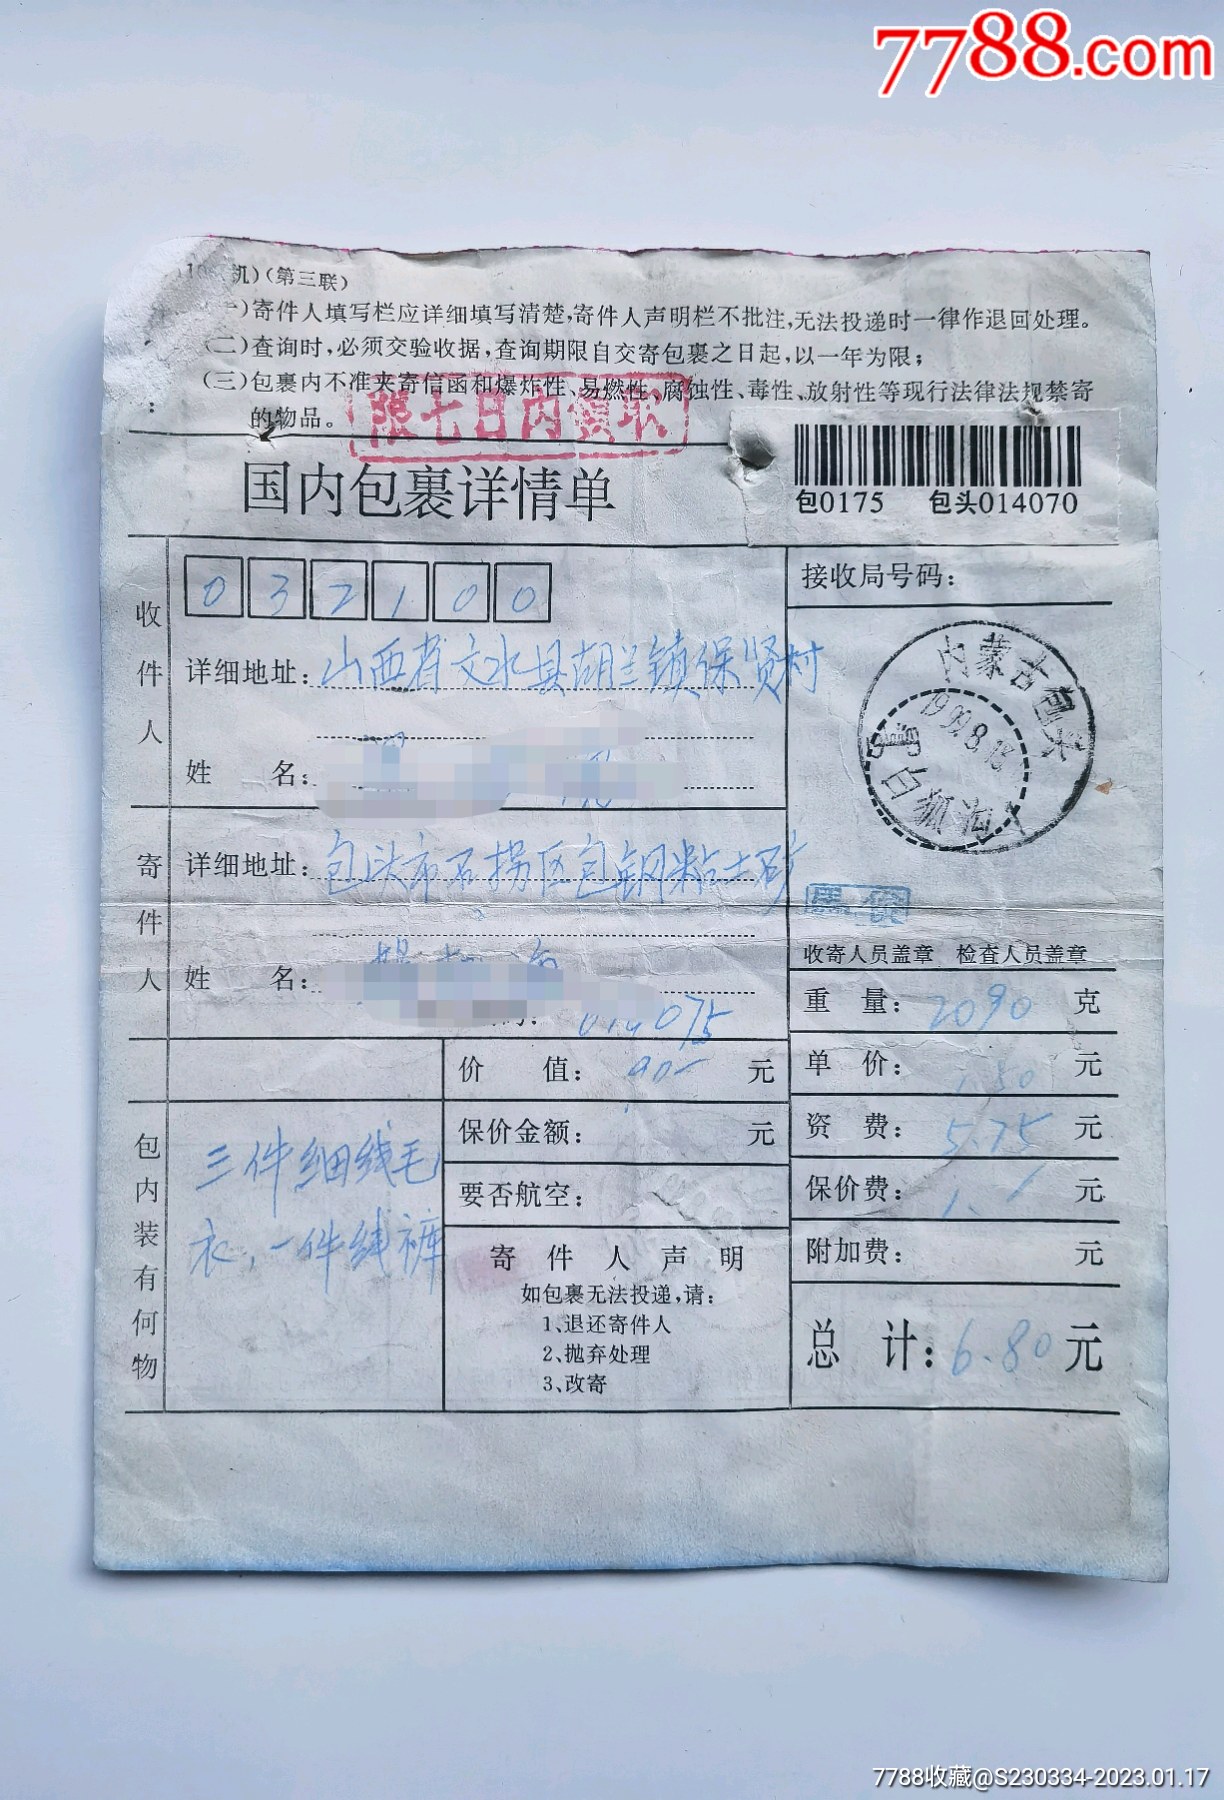 7788.com
机)(第三联)
一)寄件人填写栏应详细填写清楚,寄件人声明栏不批注,无法投递时一律作退回处理。
(二)查询时,必须交验收据,查询期限自交寄包裹之日起,以一年为限;
(三)包裹内不准夹寄信函和爆炸性、易燃性、腐蚀性、毒性、放射性等现行法律法规禁寄
的物品。
限七日内领取
国内包裹详情单
包0175 包头014070
收件人
032100
接收局号码:
详细地址:山西省文水县胡兰镇保贤村
姓 名:
内蒙古包头
1999.8.16
白狐沟
寄件人
详细地址:包头市石拐区包钢粘土矿
姓 名:
014075
收寄人员盖章 检查人员盖章
重 量:2090 克
价 值:90- 元
单 价:1.50 元
保价金额: 元
资 费:5.75 元
要否航空:
保价费:1. 元
附加费: 元
包内装有何物
三件细线毛
衣,一件线裤
寄件人声明
如包裹无法投递,请:
1、退还寄件人
2、抛弃处理
3、改寄
总 计:6.80元
7788收藏@S230334-2023.01.17